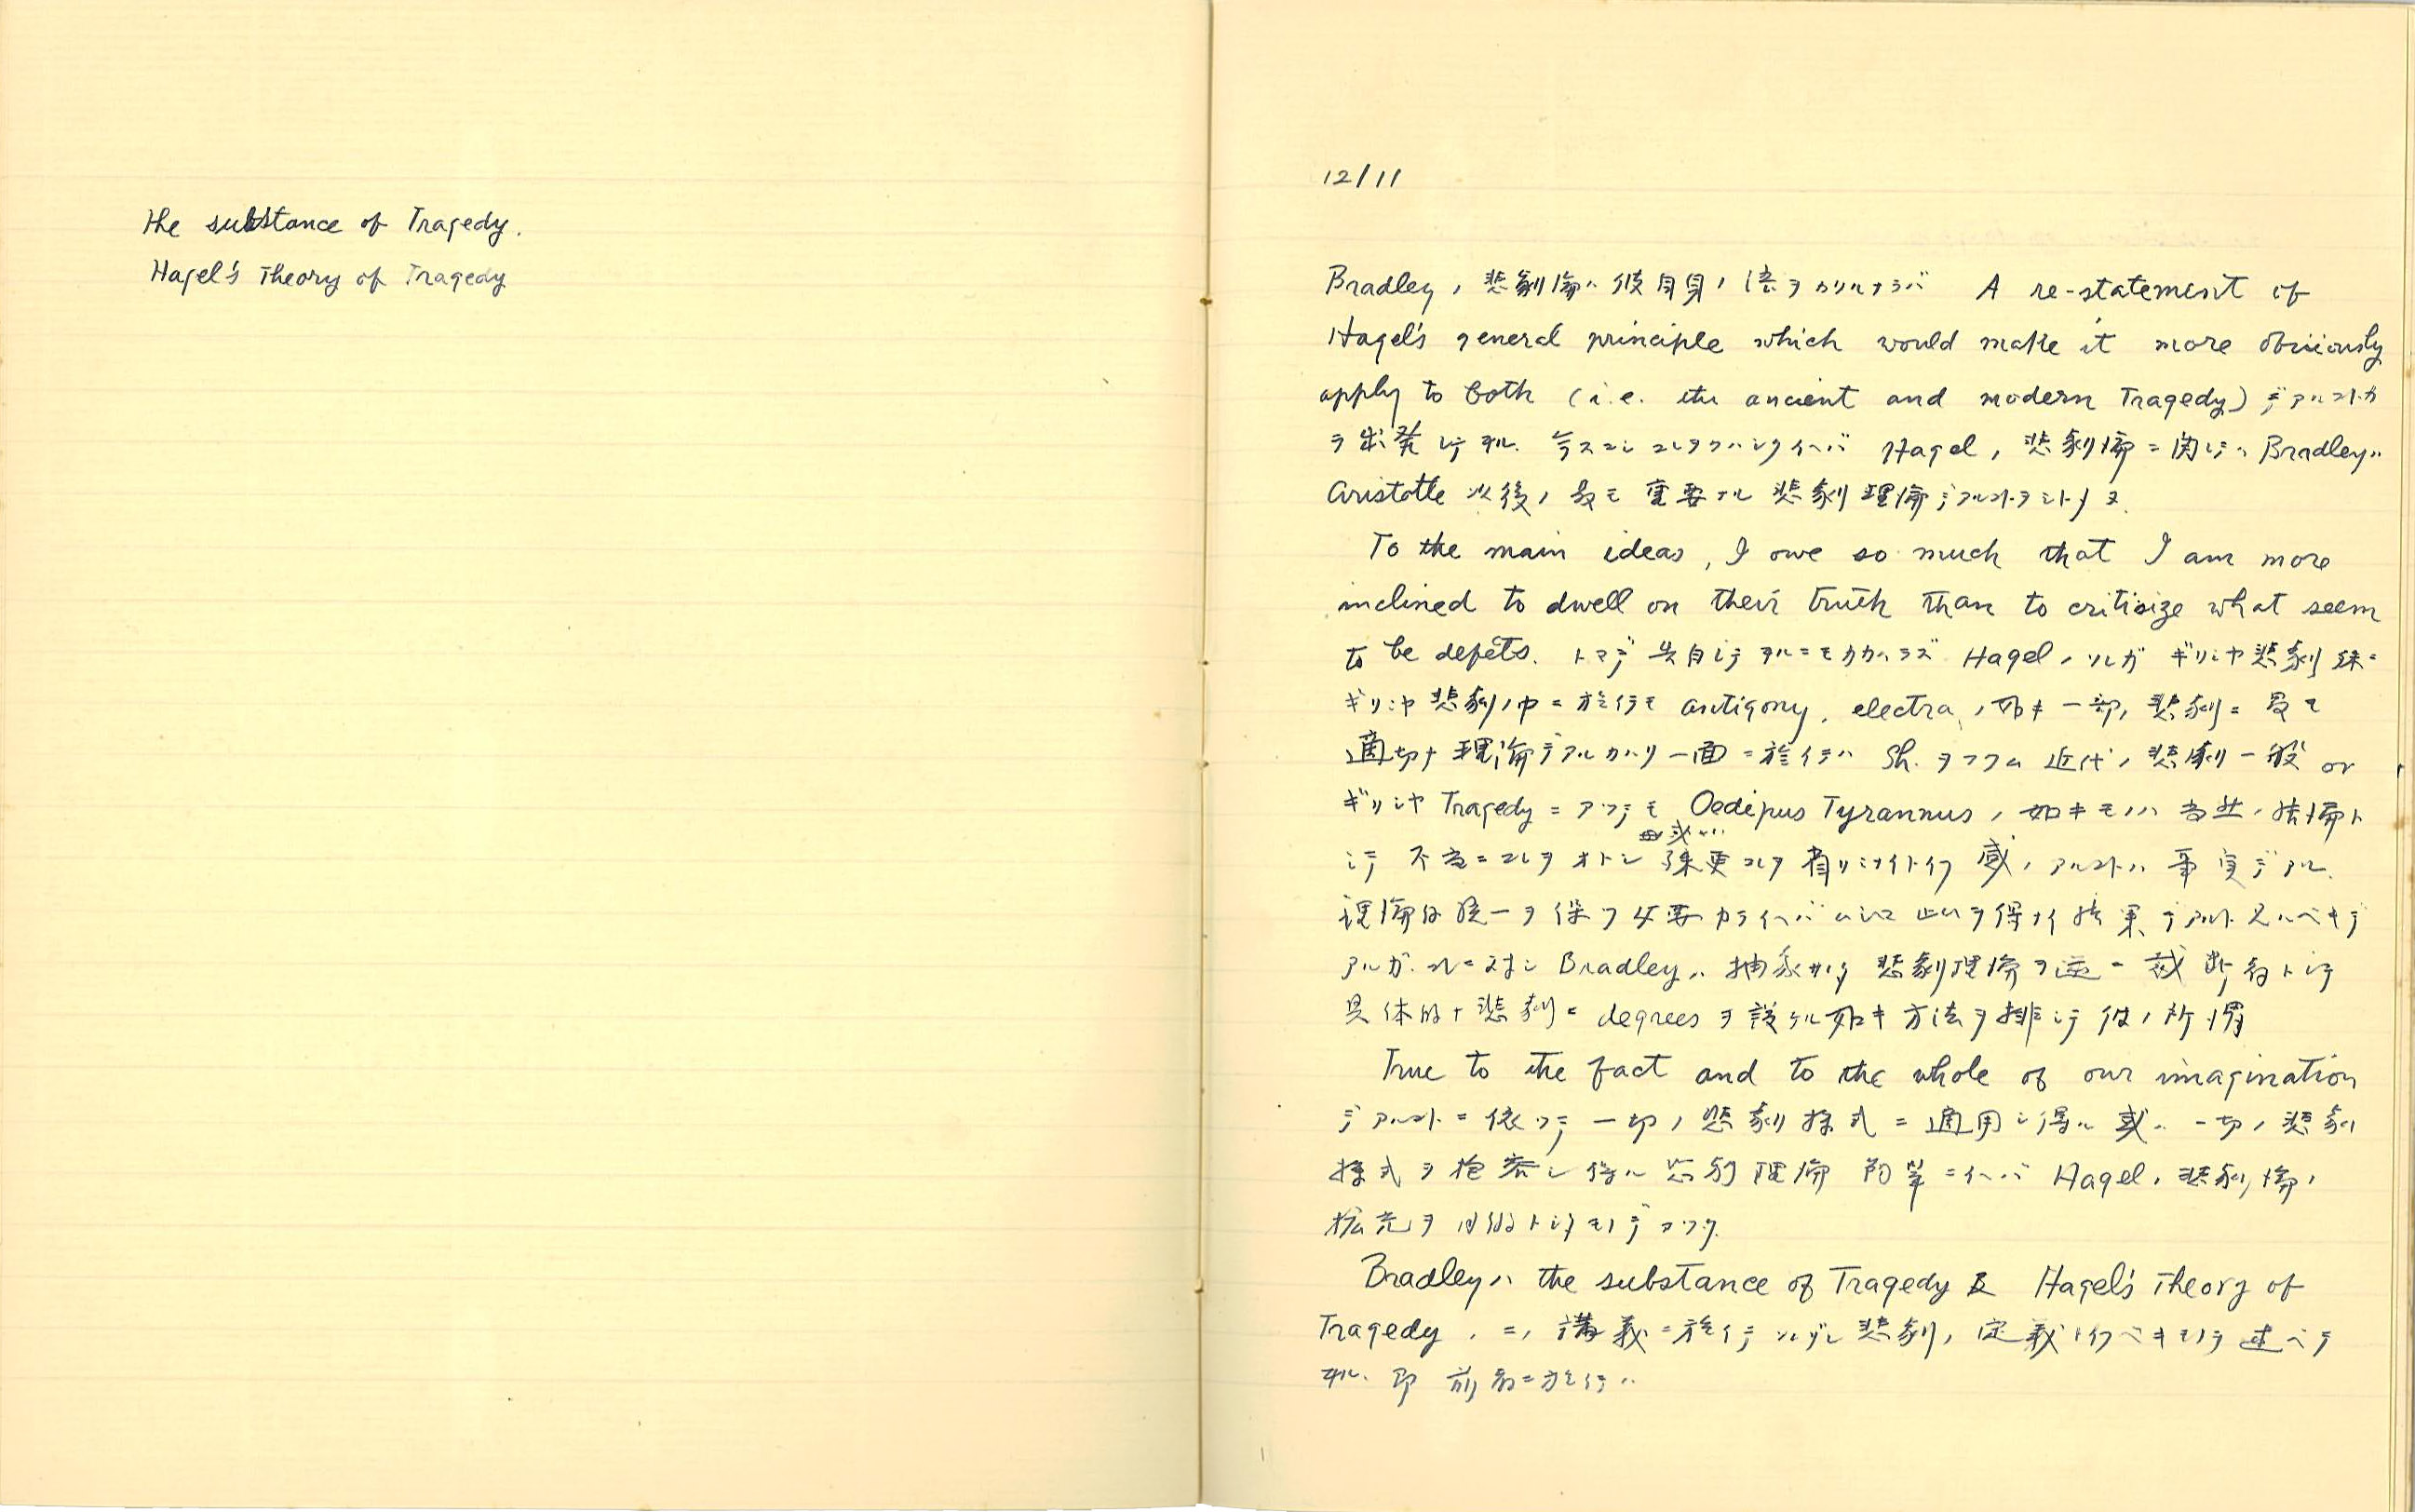 the substance of Tragedy.
Hagel's Theory of Tragedy
12/11
Bradley ノ 悲劇論ハ 彼自身ノ 語ヲカリルナラバ A re-statement of
Hagel's general principle which would make it more obviously
apply to both (i.e. the ancient and modern Tragedy) デアルコトカ
ラ出発シテヰル. 今スコシ Hagel ノ 悲劇論ニ関シテハ Bradleyハ
Aristotle 以後ノ 最モ 重要ナル 悲劇理論デアルコトヲミトメ
To the main ideas, I owe so much that I am more
inclined to dwell on their truth than to critisize what seem
to be defets. トマデ 告白シテヰルニモカカハラズ Hagel ノ ソレガ ギリシヤ悲劇 殊ニ
ギリシヤ 悲劇ノ中ニ於イテモ antigony, electra ノ如キ一部ノ 悲劇ニ 最モ
適切ナ 理論デアルカハリ一面ニ於イテハ Sh. ヲフクム 近代ノ 悲劇一般 or
ギリシヤ Tragedy ニアツテモ Oedipus Tyrannus ノ 如キモノハ 当然ノ 結論ト
シテ 不当ニコレヲオトシ 或ハ 殊更コレヲ 省リミナイトイフ 感ノ アルコトハ 事実デアル.
理論的統一ヲ 保ツ必要カライヘバ ムシロ 止ムヲ得ナイ 結果デアルト 見ルベキデ
アルガ. コレニ対シ Bradleyハ 抽象サレタ 悲劇理論ヲ逆ニ 裁断者トシテ
具体的ナ 悲劇ニ degrees ヲ 設ケル如キ 方法ヲ排シテ 彼ノ所謂
True to the fact and to the whole of our imagination
デアルコトニ 依ツテ 一切ノ 悲劇様式ニ 適用シ得ル 或ハ 一切ノ 悲劇
様式ヲ 包容シ得ル 悲劇理論 簡単ニイヘバ Hagel ノ 悲劇論ノ
拡充ヲ 目的トシタモノデアツタ.
Bradleyハ the substance of Tragedy 及 Hagel's Theory of
Tragedy ノ 二ノ 講義ニ於イテ ソレゾレ 悲劇ノ 定義トイフベキモノヲ 述ベテ
ヰル. 即 前者ニ於イテハ